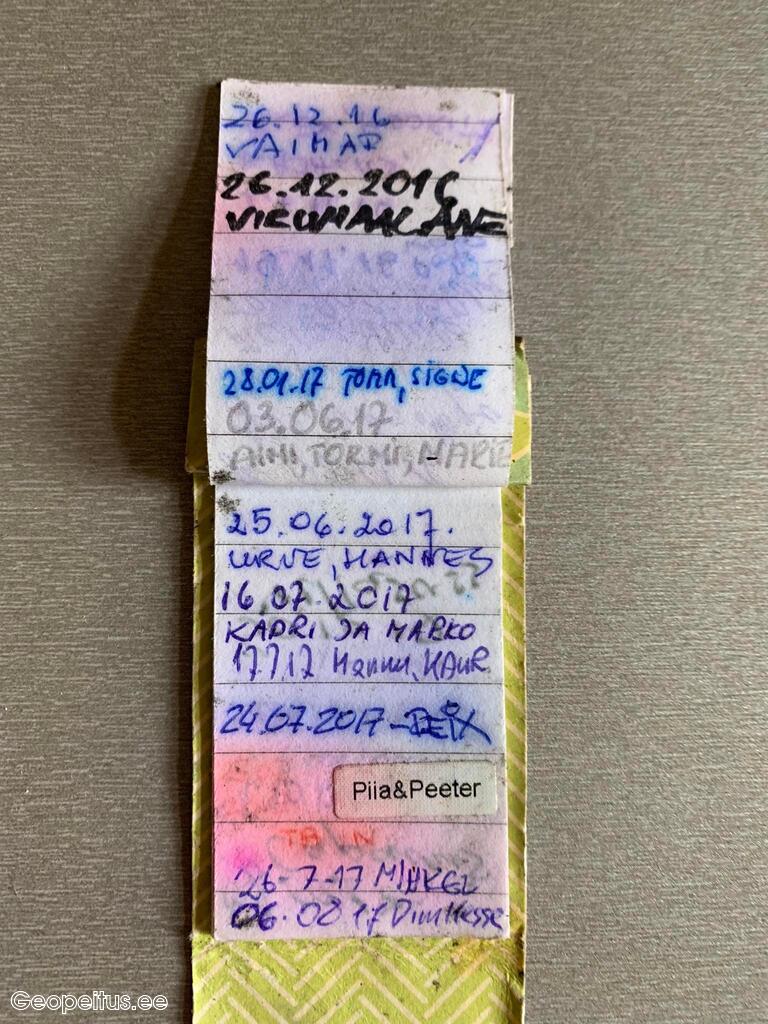 26.12.16
VAIMAR
26.12.2016
VIRUMAALANE
28.01.17 TOMM, SIGNE
03.06.17
AIMI, TORMI, MARIE
25.06.2017.
URVE, HANNES
16.07.2017
KADRI JA MARKO
17.7.17 Hannu, KAUR
24.07.2017
Piia&Peeter
26-7-17 MIHKEL
06.08 17
Geopeitus.ee